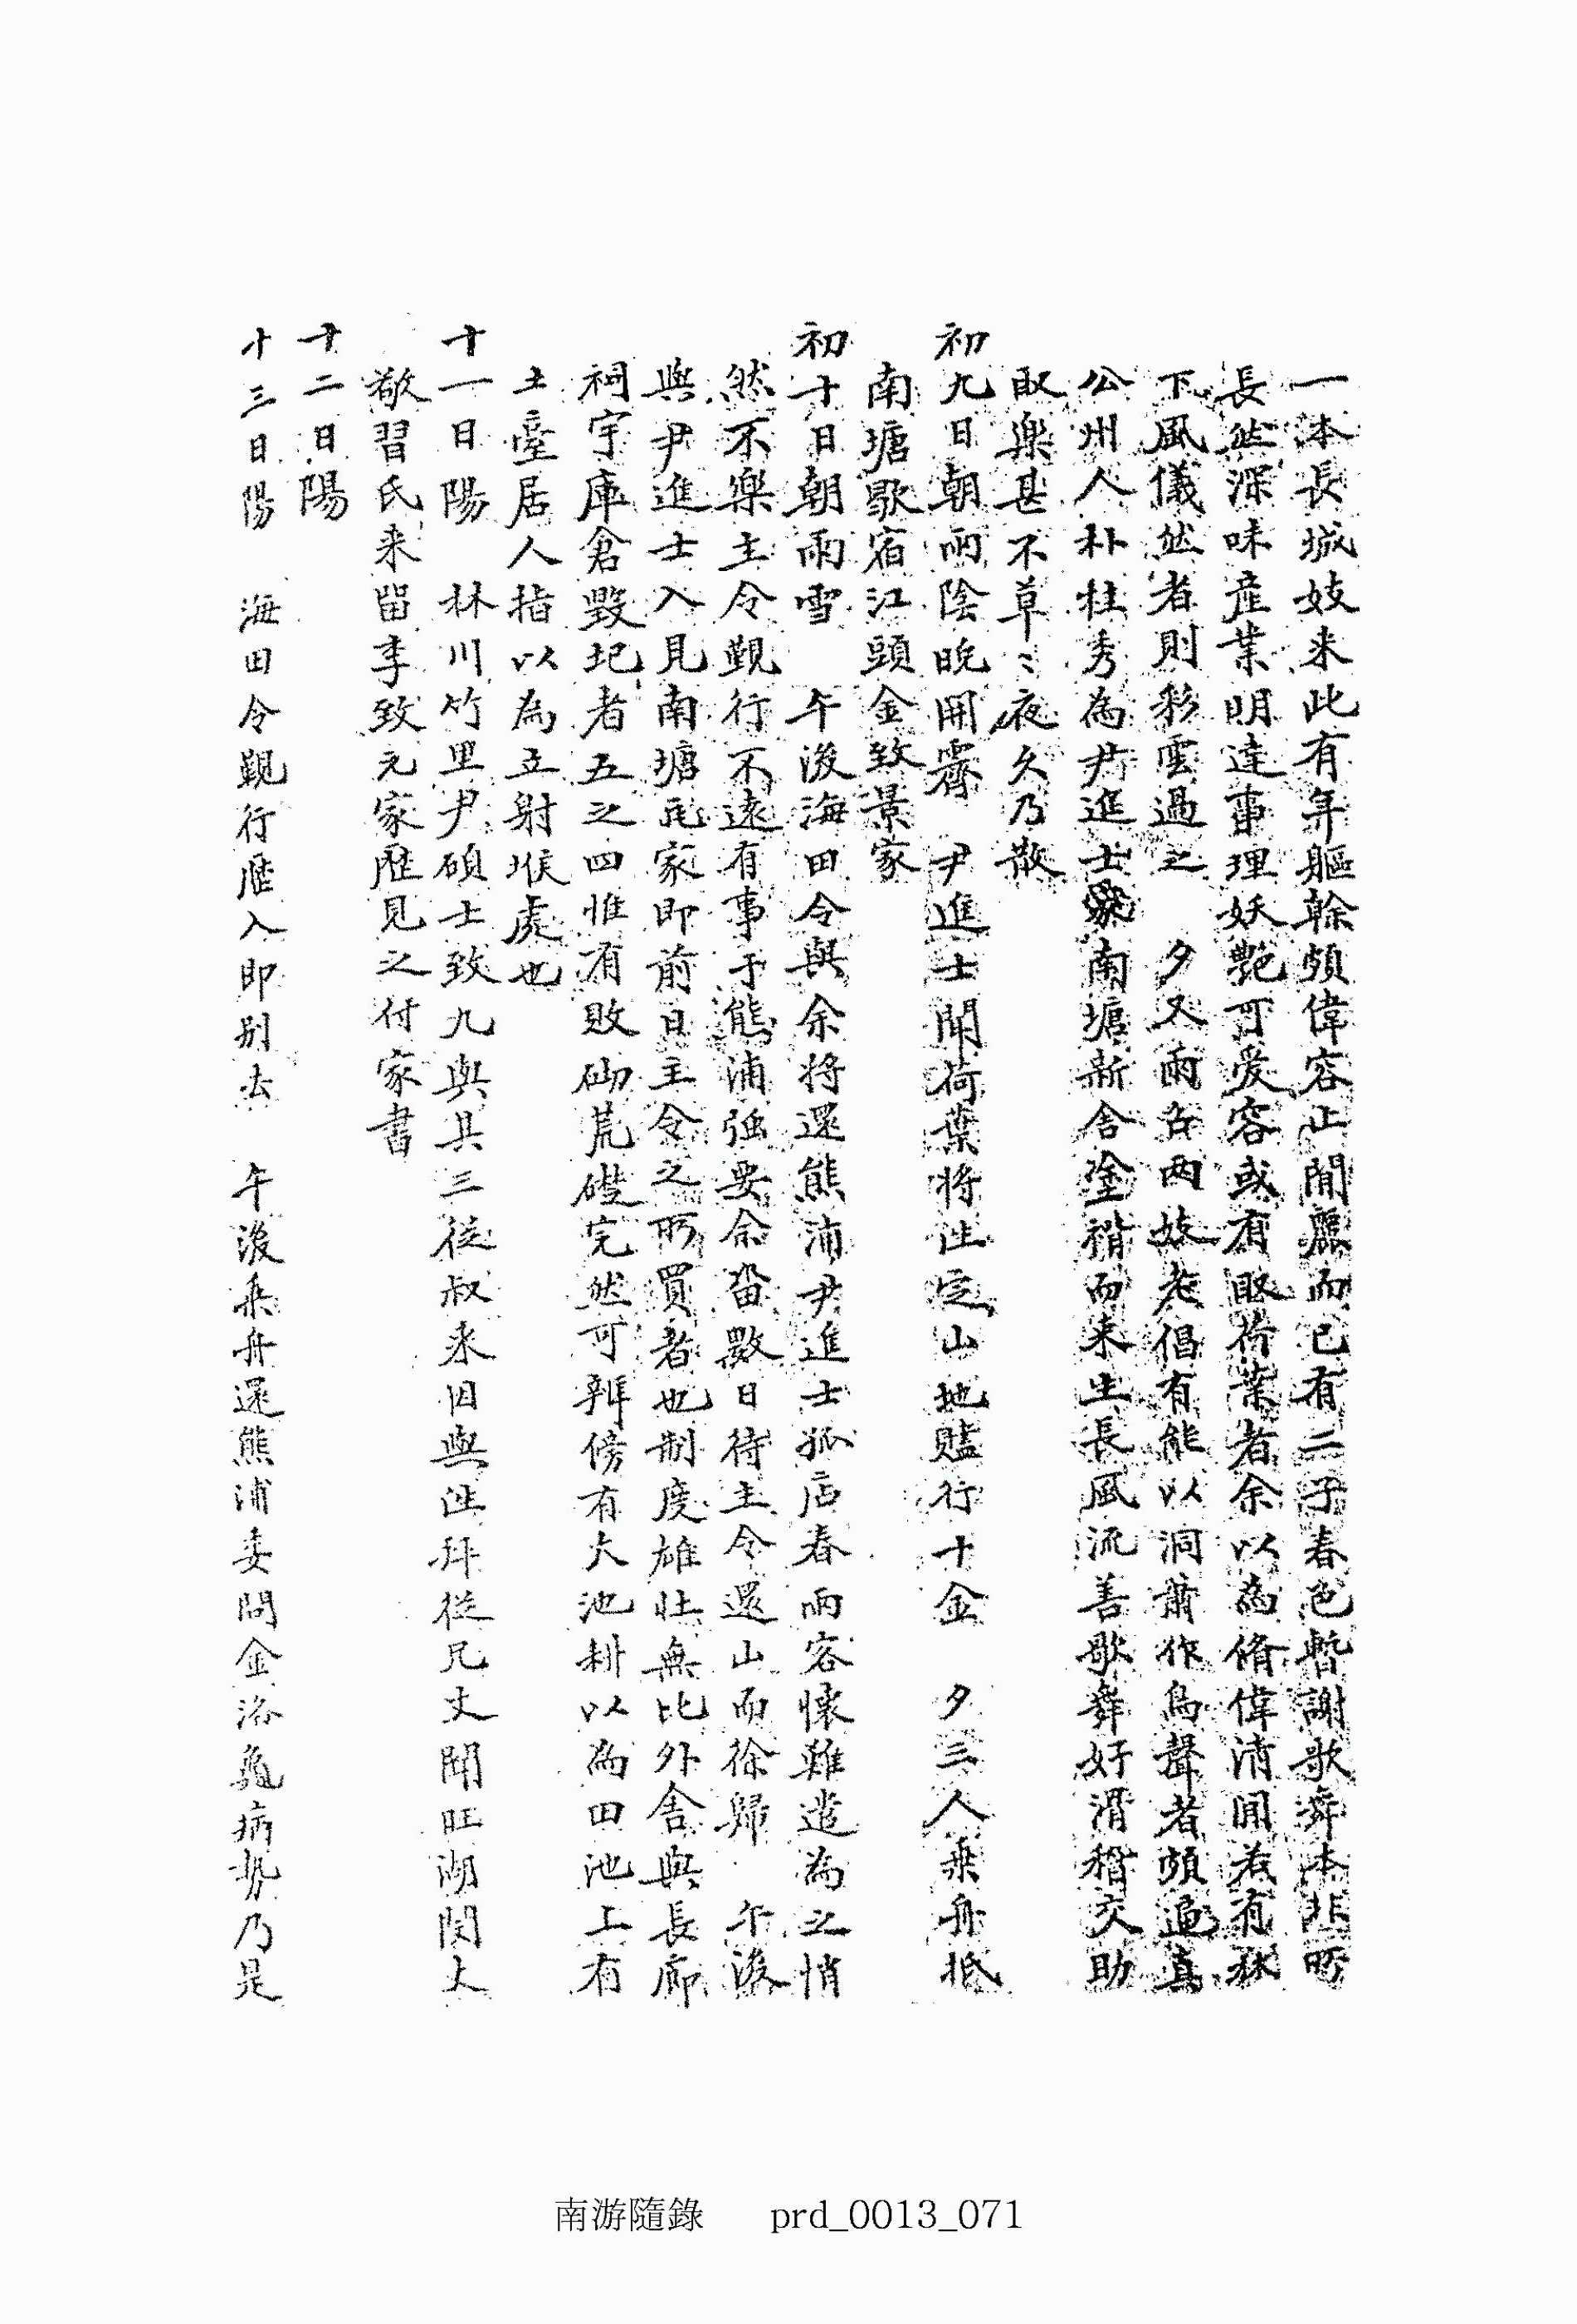 一本長城妓来此有年軀幹頗偉容止閒麗而已有二子春色暫謝歌舞本非所
長然深味産業明達事理妖艶可爱容或有取荷葉者余以為脩偉清閒若有林
下風儀然者則彩雲過之 夕又雨召两妓老倡有能以洞蕭作鳥聲者頗逼真
公州人朴牲秀為尹進士家南塘新舍塗褙而来生長風流善歌舞好滑稽交助
取樂甚不草〻夜久乃散
初九日朝雨陰晩開霽 尹進士聞荷葉将往定山地贐行十金 夕三人乗舟抵
南塘歇宿江頭金致景家
初十日朝雨雪 午後海田令與余将還熊浦尹進士孤店春雨客懷難遣為之悄
然不樂主令觐行不遠有事于熊浦强要余畱數日待主令還山而徐歸 午後
與尹進士入見南塘瓦家即前日主令之所買者也制度雄壮無比外舍與長廊
祠宇庫倉毀圮者五之四惟有敗砌荒礎完然可辨傍有大池耕以為田池上有
土臺居人指以為立射堠處也
十一日陽 林川竹里尹碩士致九與其三從叔来因與徃拜從兄丈聞旺湖閔大
敬習氏来留李致元家歷見之付家書
十二日陽
十三日陽 海田令觐行歷入即别去 午後乗舟還熊浦委問金洛龜病勢乃是
南游隨錄 prd_0013_071